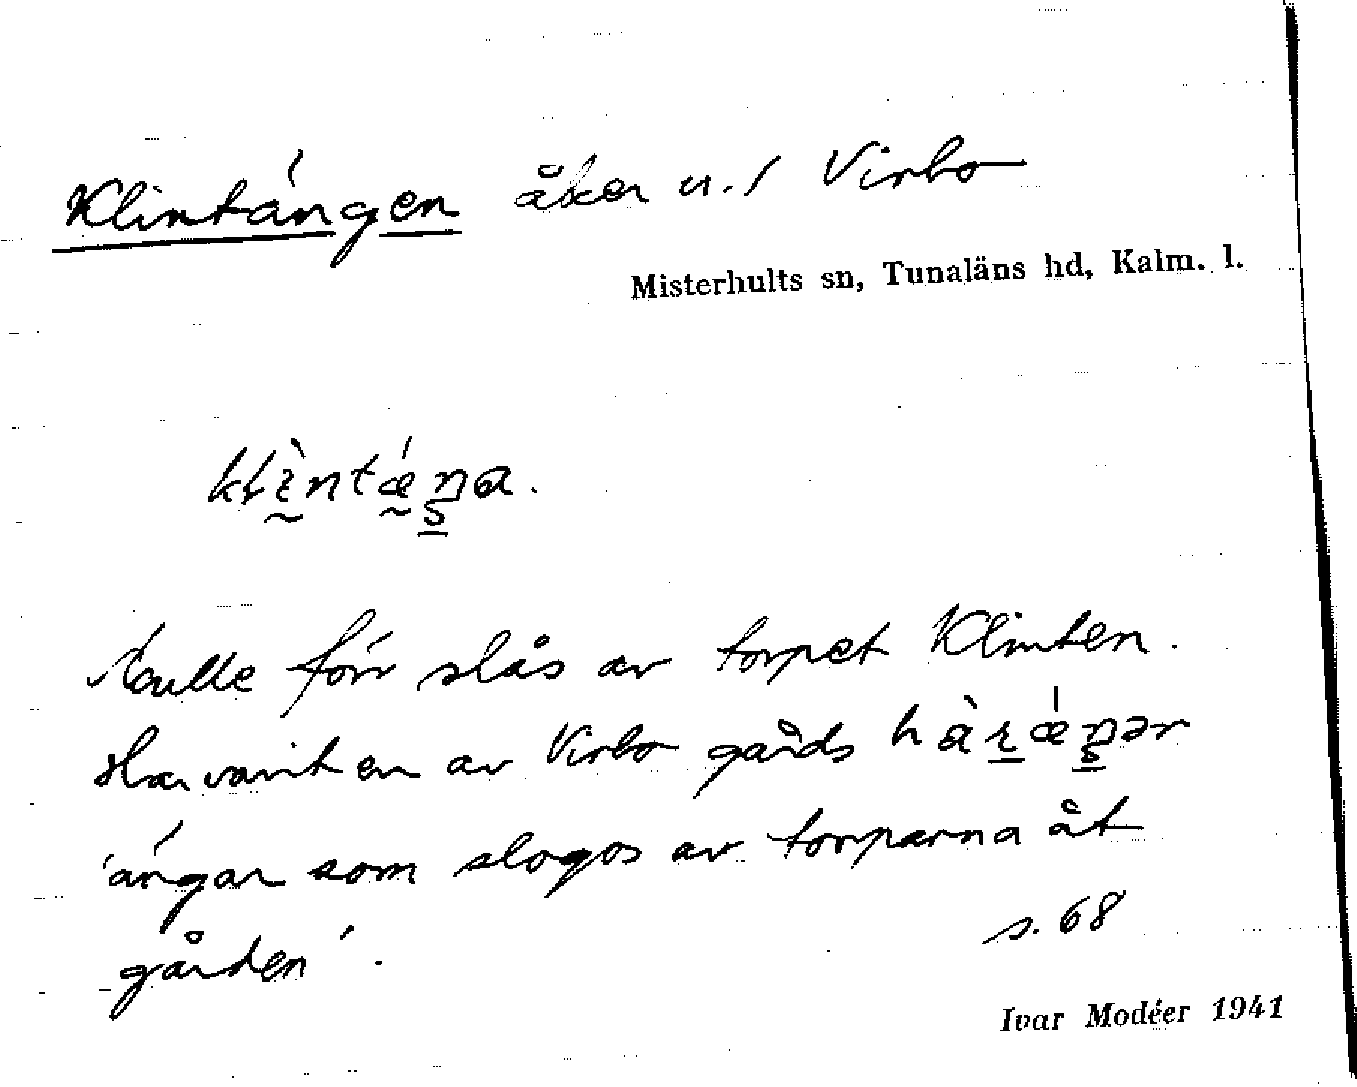 Klintängen åker u. / Virbo
Misterhults sn, Tunaläns hd, Kalm. l.
klìntǽŋa.
Skulle förr slås av torpet Klinten.
Har varit en av Virbo gårds hàrǽŋər
'ängar som slogos av torparna åt
gården'.
s. 68
Ivar Modéer 1941